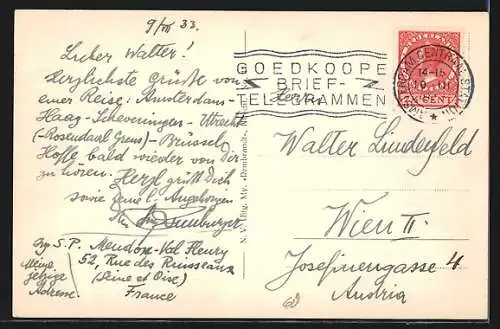 9/VIII 33.
Lieber Walter!
Herzlichste Grüße von
einer Reise: Amsterdam-
Haag-Scheveningen-Utrecht
(-Rosendaal Grens)-Brüssel
Hoffe bald wieder von Dir
zu hören. Herzl. grüßt Dich
sowie Deine l. Angehörigen
Dein
51, S. P. Meudon-Val Fleury
52, Rue des Ruisseaux
(Seine et Oise)
France
Meine
jetzige
Adresse.
GOEDKOOPE
BRIEF-
TELEGRAMMEN
AMSTERDAM CENTRAAL STATION
CENT
Herrn
Walter Lindenfeld
Wien II.
Josefinengasse 4
Austria